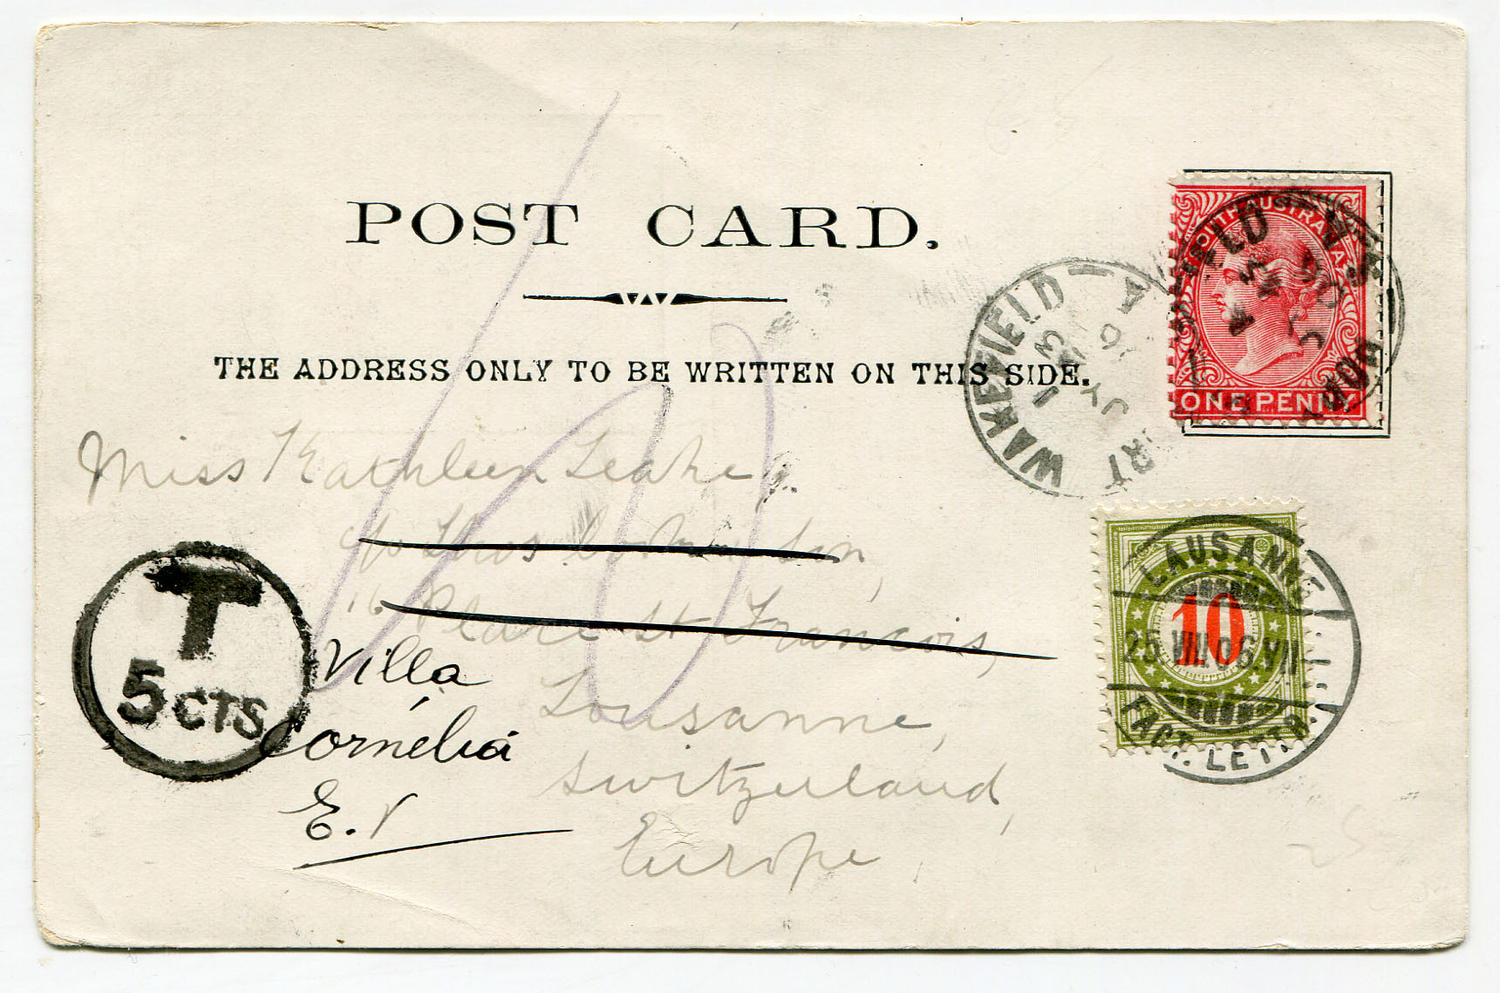 POST CARD.
THE ADDRESS ONLY TO BE WRITTEN ON THIS SIDE.
SOUTH AUSTRALIA
ONE PENNY
PORT WAKEFIELD
JY
Miss Kathleen Leake,
c/o Thos Cook & Son,
16 Place St Francois,
Lousanne,
Switzerland,
Europe
Villa
Cornélia
E. V
T
5 CTS
10
LAUSANNE
25.VIII.06.VI
FACT. LETTR.